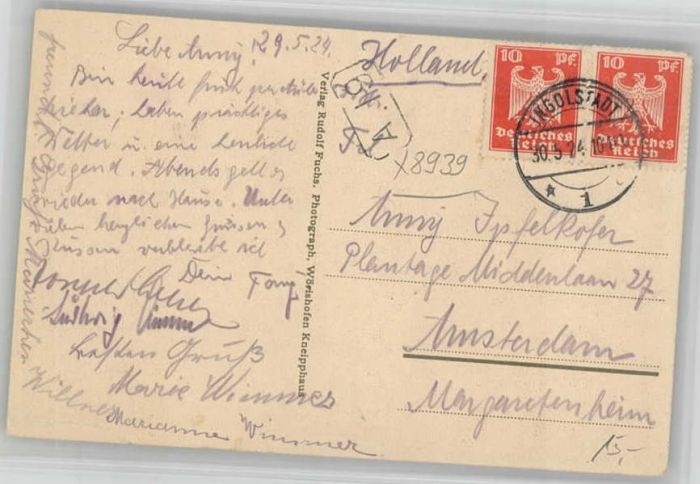 Liebe Anny, 29.5.24.
Bin heute früh
hieher, haben prächtiges
Wetter u. eine herrliche
Gegend. Abends geht es
wieder nach Hause. Unter
lieben herzlichen Grüssen &
Küssen verbleibe ich
Dein Tony
Ludwig
besten Gruß
Marie Wimmer
Marianne Wimmer
Verlag Rudolf Fuchs, Photograph, Wörishofen Kneipphaus.
Holland.
18939
10 Pf. 10 Pf.
Deutsches Reich Deutsches Reich
INGOLSTADT
30.5.24.
* 1
Anny Ipfelkofer
Plantage Middenlaan 27
Amsterdam
Margaretenheim
15,-